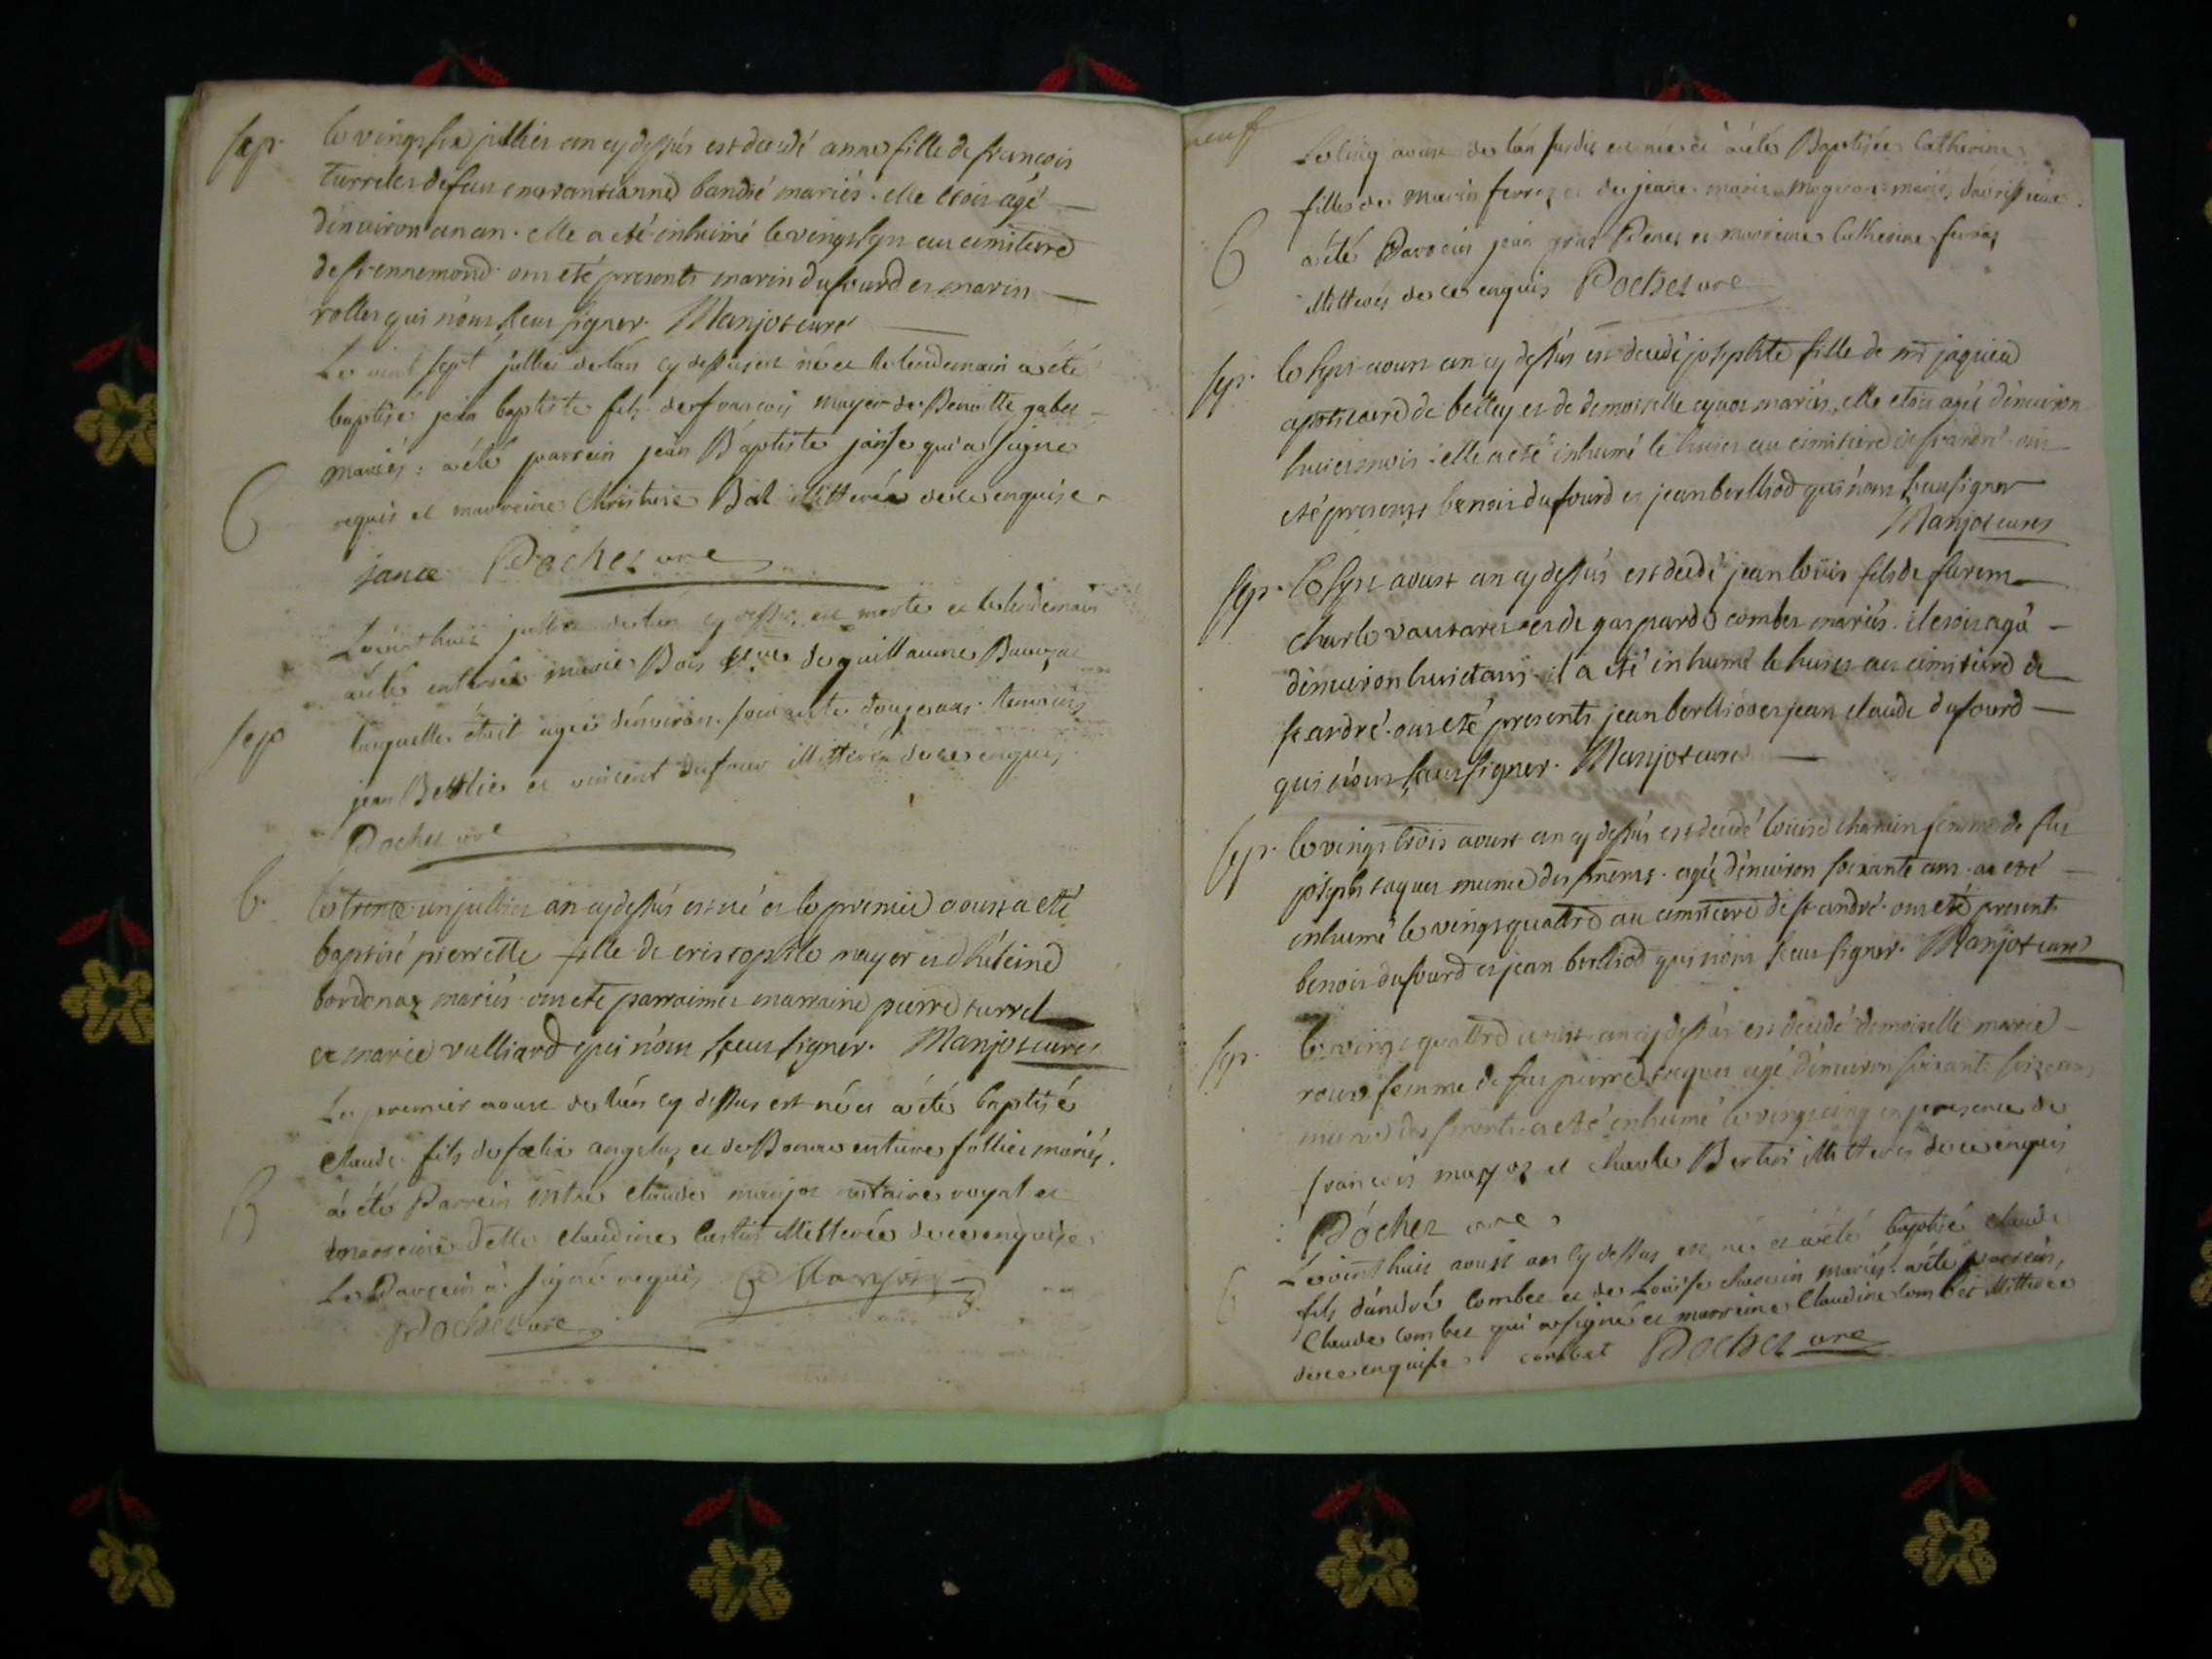 sep. le vingt six jullier an cy dessús est decedé anne fille de francois
turrel et de feue emerantianne bandié mariés. elle etoit agé
d'enuiron un an. elle a eté inhumé le vingt sept au cimitiere
de st ennemond. ont eté presents marin dufourd et marin
rollet qui n'ont sceu signer. Manjot curé
Le vint sept jullier de l'an cy dessus est né et le lendemain a été
baptisé jean baptiste fils de francois mayer de Benoitte gabet
mariés : a été parrein jean Baptiste janse qui a signé
B requis et marreine Christine Bal illitterée de ce enquise.
jance Pochet vre
Le vint huit jullier de l'an cy dessus est morte et le lendemain
a été enterrée marie Bois de guillaume
sep laquelle étoit agée d'enuiron soixante douze ans. temoins
jean Berlie et vincent dufour illitterés de ce enquis
Pochet vre
b. le trente un jullier an cy dessús est né et le premier aoust a eté
baptisé pierrette fille de cristophle mayer et d'héleine
bordenaz mariés. ont eté parrain et marraine pierre turrel
et marie vulliard qui n'ont sceu signer. Manjot curé
Le premier aoust de l'an cy dessus est né et a été baptisé
Claude fils de foelix angelos et de Bonnaventure follier mariés.
B a été Parrein mtre claude manjot notaire royal et
marreine delle claudine illitterée de ce enquise
Le Parrein a signé requis Manjot
Pochet vre
neuf
Le cinq aoust de l'an susdit est née et a été Baptisée Catherine
fille de marin ferraz et de jeane marie mognion mariés
B a été Parrein jean gros Perret et marreine Catherine ferraz
illitterés de ce enquis Pochet vre
sep. le sept aoust an cy dessús est decedé josephte fille de mr jaquier
apoticaire de belley et de demoiselle mariés. elle etoit agée d'enuiron
huict mois. elle a eté inhumé le huict au cimitiere de st andré. ont
eté presents benoit dufourd et jean berlliod qui n'ont sceu signer
Manjot curé
sep. le sept aoust an cy dessús est decedé jean loüis fils de
charle vautaret et de gasparde combet mariés. il etoit agé
d'enuiron huict ans. il a eté inhumé le huict au cimitiere de
st andré. ont eté presents jean berlliod et jean claude dufourd
qui n'ont sceu signer. Manjot curé
sep. le vingt trois aoust an cy dessús est decedé loüise chamin femme de feu
joseph taquet munie des sacrements. agée d'enuiron soixante ans. a eté
inhumé le vingt quattre au cimitiere de st andré. ont eté present
benoit dufourd et jean berlliod qui n'ont sceu signer. Manjot curé
sep. le vingt quattre aoust an cy dessús est decedé demoiselle marie
roux femme de feu pierre taquet agé d'enuiron soixante seize ans
munie des sacrements a eté inhumé le vingt cinq en presence de
francois mayoz et charle Bertet illitterés de ce enquis
Pochet vre
Le vint huit aoust an cy dessus est né et a été baptisé claude
B fils d'andré Combet et de Louise chamin mariés. a été parrein
Claude Combet qui a signé et marreine Claudine Combet illitterée
de ce enquise combet Pochet vre